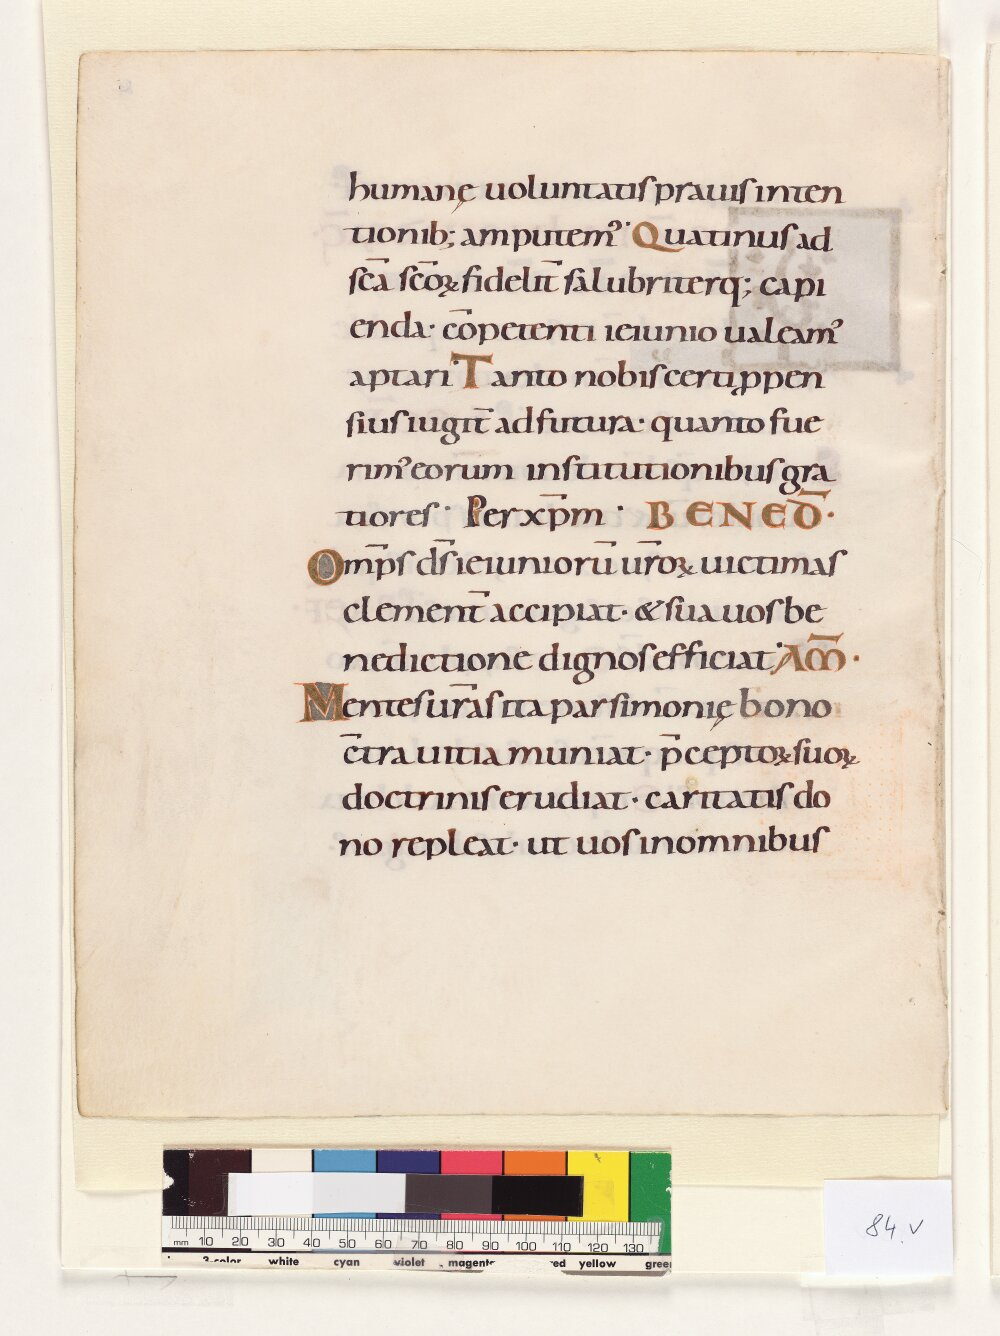 humanę uoluntatiſ prauiſ inten
tionib; amputem᾿ Quatinuſ ad
ſc̄a ſc̄oꝝ fidelit̄ ſalubriterq; capi
enda· cōpetenti ieiunio ualeam᾿
aptari· Tanto nobiſ certi ꝓpen
ſiuſ iugit̄ ad futura· quanto fue
rim᾿ eorum inſtitutionibuſ gra
tioreſ· Per xp̄m · BENED̄·
Om̄pſ dſ̄ ieiuniorū ur̄oꝝ uictimaſ
clement̄ accipiat· & ſua uoſ be
nedictione dignoſ efficiat· AM̄·
Menteſ ur̄aſ ita parſimonię bono
c̄tra uitia muniat· p̄ceptoꝝ ſuoꝝ
doctriniſ erudiat· caritatiſ do
no repleat· ut uoſ in omnibuſ
84.v
mm 10 20 30 40 50 60 70 80 90 100 110 120 130
3-color white cyan violet magenta red yellow green